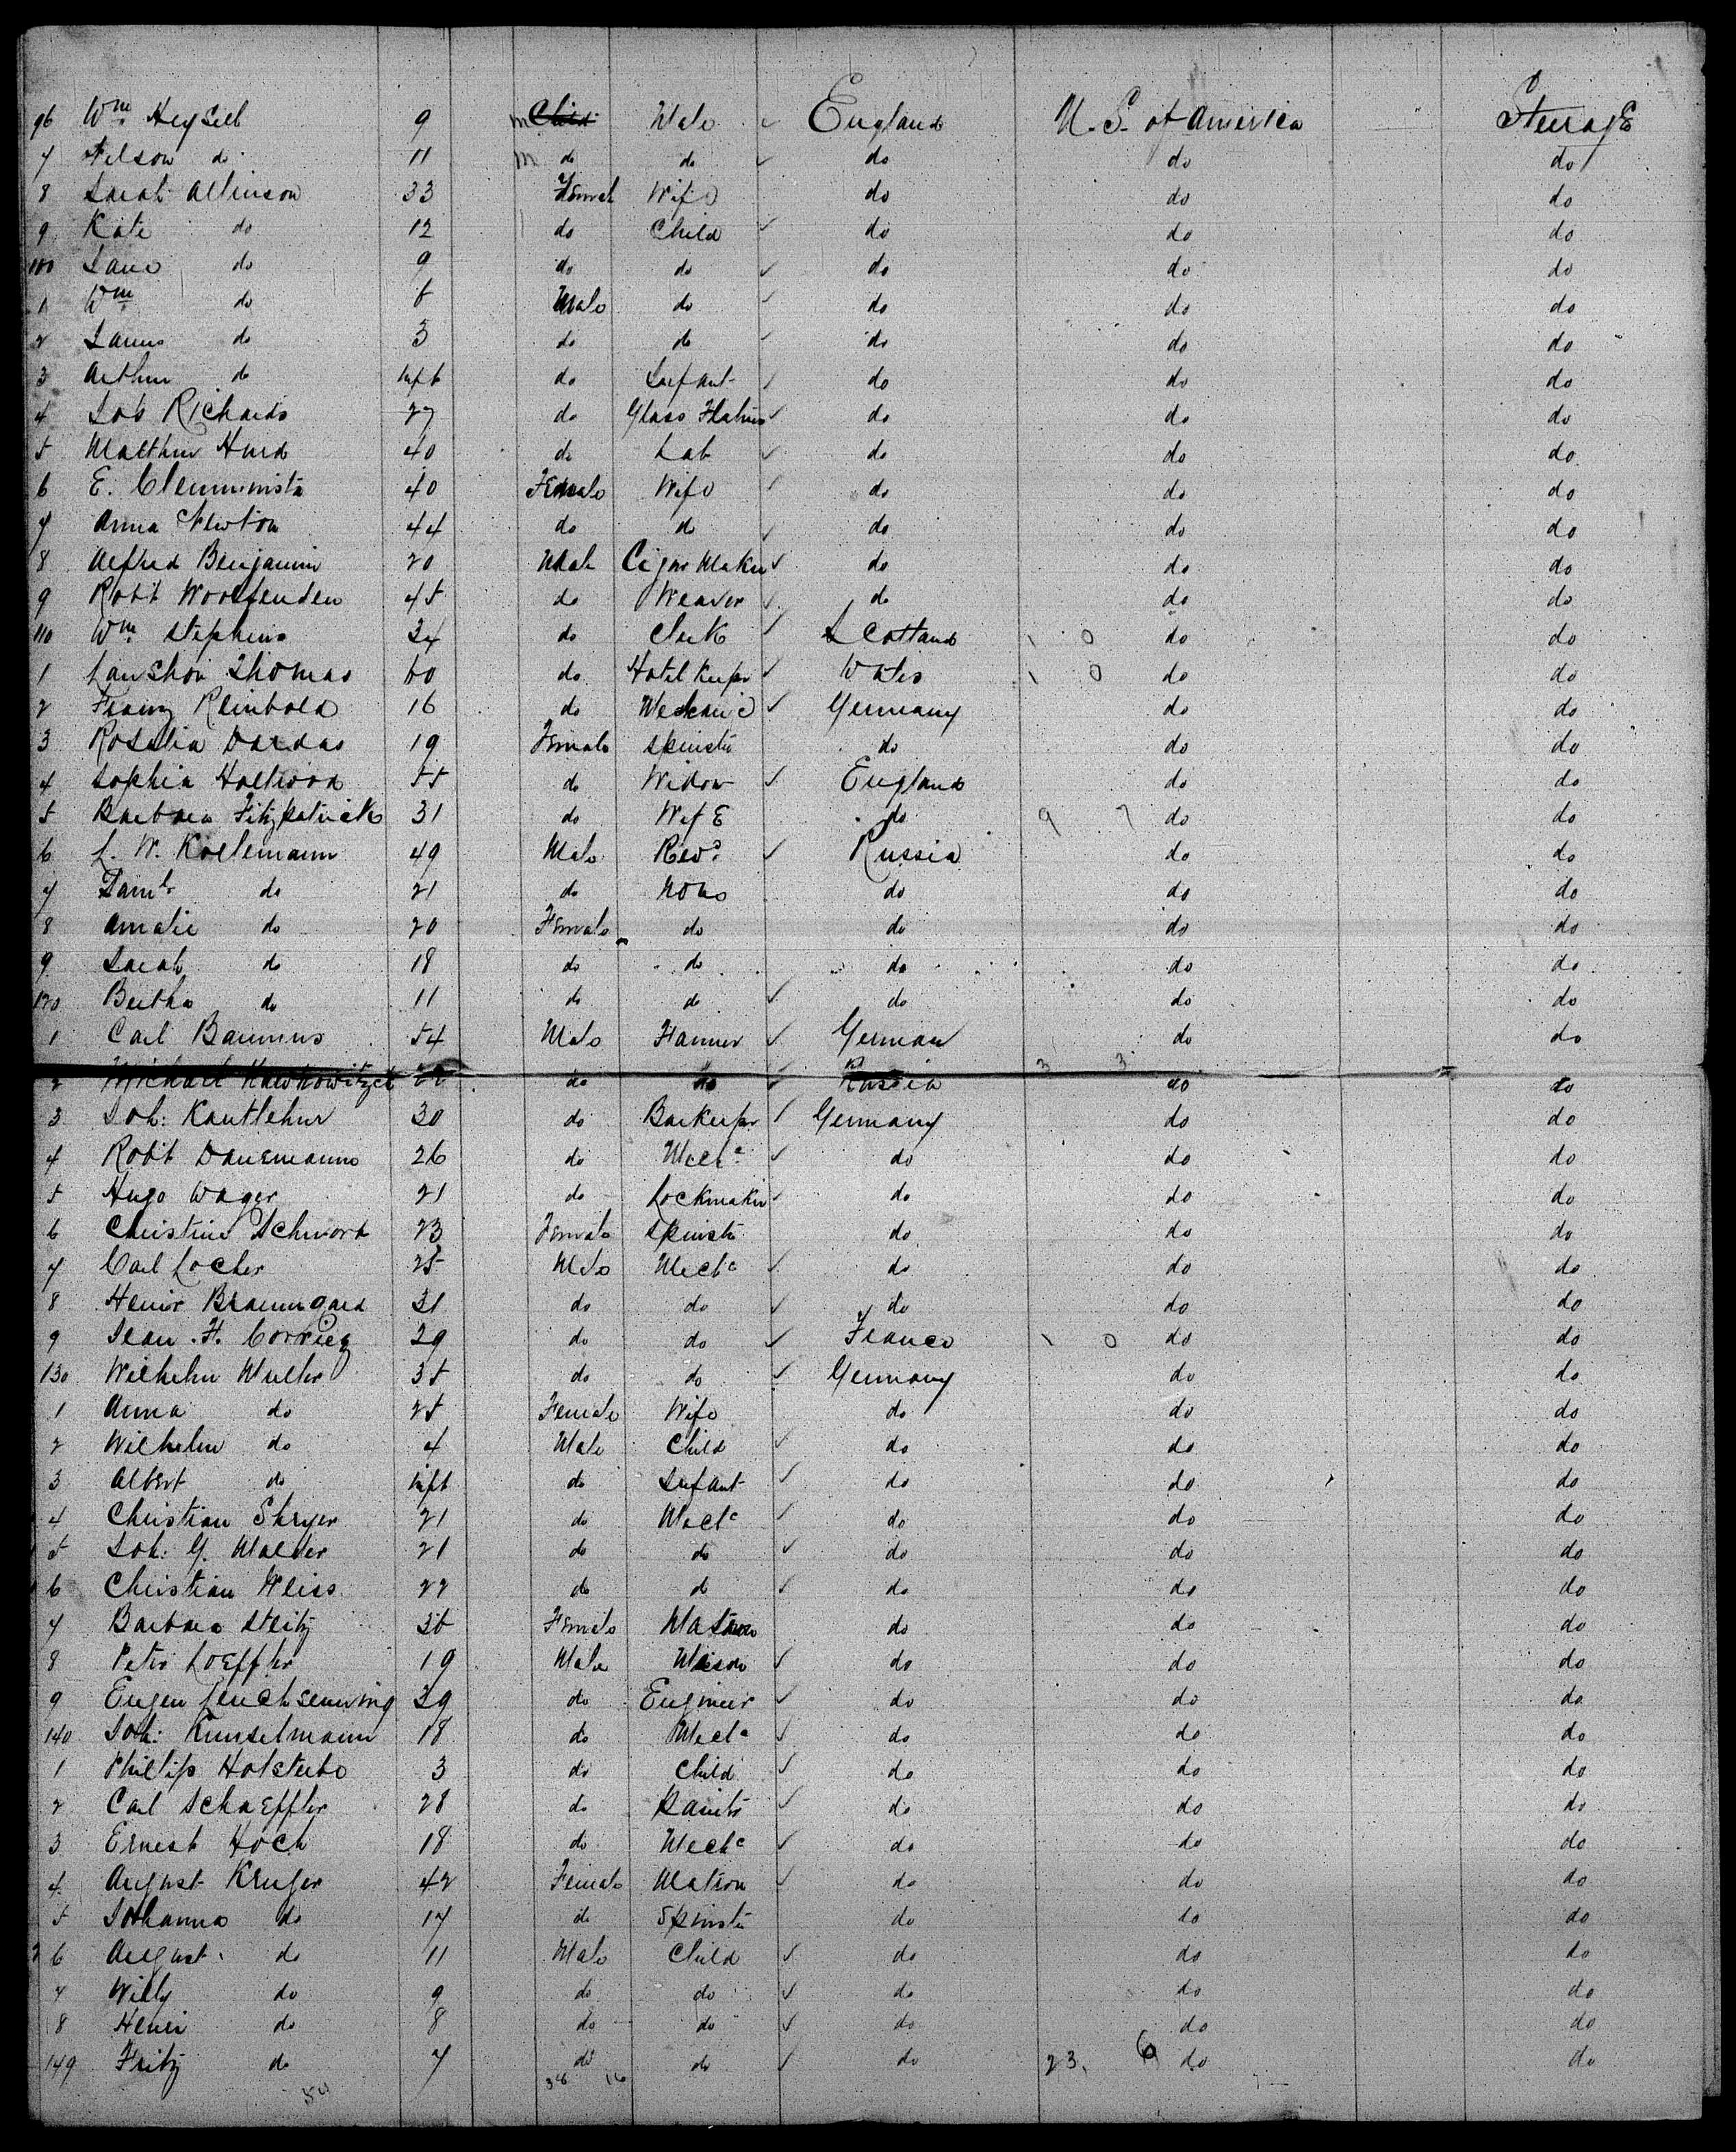 96 Wm Heysell 9 m Child Male ✓ England U. S. of America Steerage
7 Nelson do 11 m do do ✓ do do do
8 Sarah Atkinson 33 Female Wife do do do
9 Kate do 12 do Child ✓ do do do
100 Jane do 9 do do ✓ do do do
1 Wm do 5 Male do ✓ do do do
2 James do 3 do do ✓ do do do
3 Arthur do Inft do Infant ✓ do do do
4 Job Richards 27 do Glass ✓ do do do
5 Matthew Hurd 40 do Lab ✓ do do do
6 E. 40 Female Wife ✓ do do do
7 Anna Newton 44 do do ✓ do do do
8 Alfred Benjamin 20 Male Cigar Maker ✓ do do do
9 Robt Woostenden 45 do Weaver ✓ do do do
110 Wm Stephens 34 do Clerk ✓ Scotland 1 0 do do
1 Thomas 60 do Hotel Keeper ✓ Wales 1 0 do do
2 Franz Reinbold 16 do Mechanic ✓ Germany do do
3 Rosalia Dardas 19 Female Spinster do do do
4 Sophia Holtwood 55 do Widow ✓ England do do
5 Barbara Fitzpatrick 31 do Wife do 9 7 do do
6 L. W. Koelemann 49 Male Revd ✓ Russia do do
7 Danl do 21 do None do do do
8 Amalie do 20 Female do do do do
9 Sarah do 18 do do do do do
120 Bertha do 11 do do ✓ do do do
1 Carl Baumus 54 Male Farmer ✓ German do do
2 Michael 22 do do ✓ Russia 3 3 do do
3 Joh: Kantlehur 30 do Barkeeper ✓ Germany do do
4 Robt Danemann 26 do Mechc ✓ do do do
5 Hugo Wager 21 do Lockmaker ✓ do do do
6 Christine Schwort 23 Female Spinster do do do
7 Carl Locher 25 Male Mechc ✓ do do do
8 Henir Braumgard 31 do do ✓ do do do
9 Jean . H. Correy 29 do do ✓ France 1 0 do do
130 Wilhelm Muller 35 do do ✓ Germany do do
1 Anna do 25 Female Wife do do do
2 Wilhelm do 4 Male Child ✓ do do do
3 Albert do Inft do Infant ✓ do do do
4 Christian Shryer 21 do Mechc ✓ do do do
5 Joh: G. Walder 21 do do ✓ do do do
6 Christian Weiss 22 do do ✓ do do do
7 Barbara Steitz 36 Female Matron do do do
8 Peter Loeffler 19 Male Mason ✓ do do do
9 Eugen 29 do Engineer ✓ do do do
140 Joh: Kunselmann 18 do Mechc ✓ do do do
1 Phillip Holsterbo 3 do Child ✓ do do do
2 Carl Schaeffler 28 do Painter ✓ do do do
3 Ernest Hoch 18 do Mechc ✓ do do do
4 August Kruger 42 Female Matron ✓ do do do
5 Johanna do 17 do Spinster do do do
6 August do 11 Male Child ✓ do do do
7 Willy do 9 do do ✓ do do do
8 Henri do 8 do do ✓ do do do
149 Fritz do 7 do do ✓ do 23. 6 do do
54 38 16